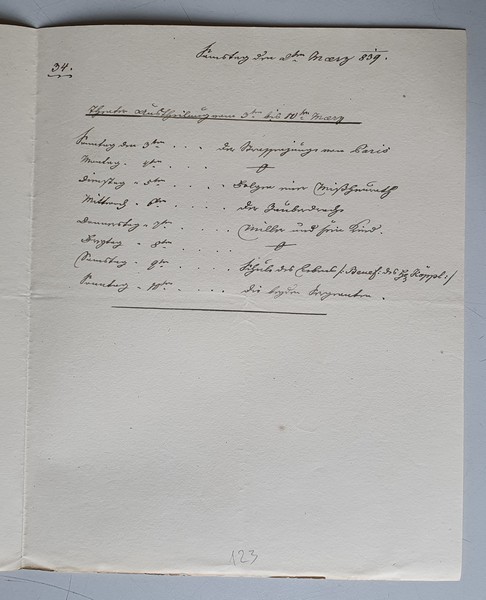 Samstag den 2ten Maerz 839.
34.
Theater Austheilung vom 3ten bis 10ten Maerz
Sonntag den 3ten . . . Der Strassenjunge von Paris
Montag - 4ten . . . .
Dienstag - 5ten . . . . Folgen einer Mißheurath
Mittwoch - 6ten . . . . Der Zauberdrache
Donnerstag - 7ten . . . . Müller und sein Kind.
Freytag - 8ten . . . .
Samstag - 9ten . . . . Schule des Lebens /: Benef. des H: Koppl :/
Sonntag - 10ten . . . . Die beyden Sergeanten .
123